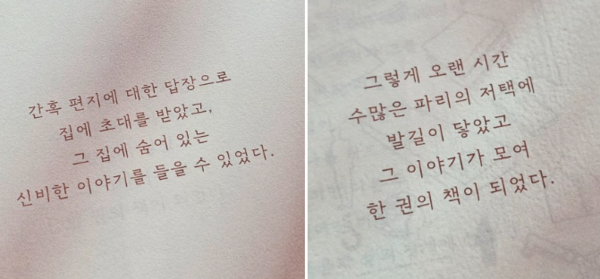 간혹 편지에 대한 답장으로
집에 초대를 받았고,
그 집에 숨어 있는
신비한 이야기를 들을 수 있었다.
그렇게 오랜 시간
수많은 파리의 저택에
발길이 닿았고
그 이야기가 모여
한 권의 책이 되었다.